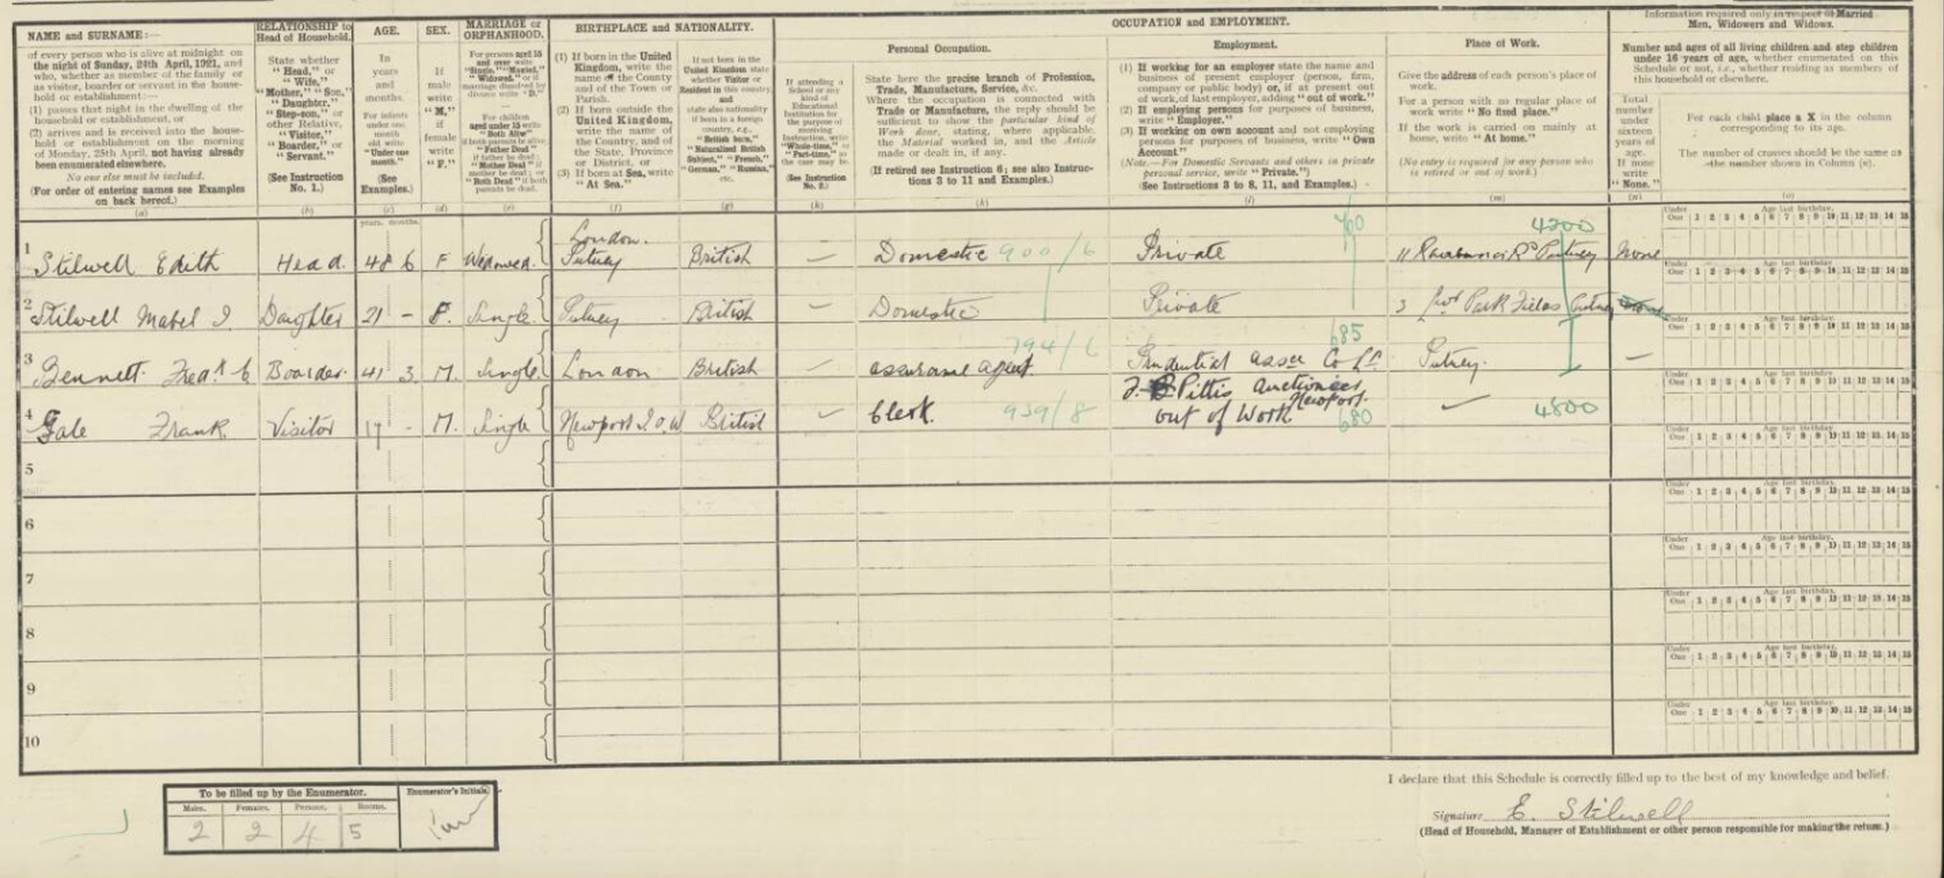 NAME and SURNAME:—
of every person who is alive at midnight on
the night of Sunday, 24th April, 1921, and
who, whether as member of the family or
as visitor, boarder or servant in the house-
hold or establishment:—
(1) passes that night in the dwelling of the
household or establishment, or
(2) arrives and is received into the house-
hold or establishment on the morning
of Monday, 25th April, not having already
been enumerated elsewhere.
No one else must be included.
(For order of entering names see Examples
on back hereof.)
(a)
RELATIONSHIP to
Head of Household.
State whether
"Head," or
"Wife,"
"Mother," "Son,"
"Daughter,"
"Step-son," or
other Relative,
"Visitor,"
"Boarder," or
"Servant."
(See Instruction
No. 1.)
(b)
AGE.
In
years
and
months.
For infants
under one
month
old write
"Under one
month."
(See
Examples.)
(c)
SEX.
If
male
write
"M,"
if
female
write
"F."
(d)
MARRIAGE or
ORPHANHOOD.
For persons aged 15
and over write
"Single," "Married,"
"Widowed," or if
marriage dissolved by
divorce write "D."
For children
aged under 15 write
if both parents be alive,
"Both Alive"
"Father Dead"
if father be dead;
"Mother Dead" if
mother be dead; or
"Both Dead" if both
parents be dead.
(e)
BIRTHPLACE and NATIONALITY.
(1) If born in the United
Kingdom, write the
name of the County
and of the Town or
Parish.
(2) If born outside the
United Kingdom,
write the name of
the Country, and of
the State, Province
or District, or
(3) If born at Sea, write
"At Sea."
(f)
If not born in the
United Kingdom state
whether Visitor or
Resident in this country,
and
state also nationality
if born in a foreign
country, e.g.,
"British born,"
"Naturalised British
Subject," "French,"
"German," "Russian,"
etc.
(g)
OCCUPATION and EMPLOYMENT.
If attending a
School or any
kind of
Educational
Institution for
the purpose of
receiving
Instruction, write
"Whole-time," or
"Part-time," as
the case may be.
(See Instruction
No. 2.)
(h)
Personal Occupation.
State here the precise branch of Profession,
Trade, Manufacture, Service, &c.
Where the occupation is connected with
Trade or Manufacture, the reply should be
sufficient to show the particular kind of
Work done, stating, where applicable,
the Material worked in, and the Article
made or dealt in, if any.
(If retired see Instruction 6; see also Instruc-
tions 3 to 11 and Examples.)
(k)
Employment.
(1) If working for an employer state the name and
business of present employer (person, firm,
company or public body) or, if at present out
of work, of last employer, adding "out of work."
(2) If employing persons for purposes of business,
write "Employer."
(3) If working on own account and not employing
persons for purposes of business, write "Own
Account"
(Note.—For Domestic Servants and others in private
personal service, write "Private.")
(See Instructions 3 to 8, 11, and Examples.)
(l)
Place of Work.
Give the address of each person's place of
work.
For a person with no regular place of
work write "No fixed place."
If the work is carried on mainly at
home, write "At home."
(No entry is required for any person who
is retired or out of work.)
(m)
Information required only in respect of Married
Men, Widowers and Widows.
Number and ages of all living children and step children
under 16 years of age, whether enumerated on this
Schedule or not, i.e., whether residing as members of
this household or elsewhere.
Total
number
under
sixteen
years of
age.
If none
write
"None."
(n)
For each child place a X in the column
corresponding to its age.
The number of crosses should be the same as
the number shown in Column (n).
(o)
years. months.
Under One 1 2 3 4 5 6 7 8 9 10 11 12 13 14 15
Age last birthday.
1 Stilwell Edith Head. 48 6 F Widowed. London. Putney British — Domestic 900/6 Private 11 Putney None
4200
Under One 1 2 3 4 5 6 7 8 9 10 11 12 13 14 15
Age last birthday.
2 Stilwell Mabel I. Daughter 21 – F. Single. Putney British — Domestic Private 3 Park Fields Putney
Under One 1 2 3 4 5 6 7 8 9 10 11 12 13 14 15
Age last birthday.
794/6 685
3 Bennett Fredk C Boarder. 41 3 M. Single London British — assurance agent. Prudential assce Co Ld. Putney. —
Under One 1 2 3 4 5 6 7 8 9 10 11 12 13 14 15
Age last birthday.
Pittis Auctioneer, Newport.
4 Gale Frank. Visitor 17 - M. Single Newport I.O.W British — Clerk. 939/8 out of Work 680 4800
Under One 1 2 3 4 5 6 7 8 9 10 11 12 13 14 15
Age last birthday.
5
Under One 1 2 3 4 5 6 7 8 9 10 11 12 13 14 15
Age last birthday.
6
Under One 1 2 3 4 5 6 7 8 9 10 11 12 13 14 15
Age last birthday.
7
Under One 1 2 3 4 5 6 7 8 9 10 11 12 13 14 15
Age last birthday.
8
Under One 1 2 3 4 5 6 7 8 9 10 11 12 13 14 15
Age last birthday.
9
Under One 1 2 3 4 5 6 7 8 9 10 11 12 13 14 15
Age last birthday.
10
To be filled up by the Enumerator.
Males. Females. Persons. Rooms.
2 2 4 5
Enumerator's Initials.
I declare that this Schedule is correctly filled up to the best of my knowledge and belief.
Signature E. Stilwell
(Head of Household, Manager of Establishment or other person responsible for making the return.)